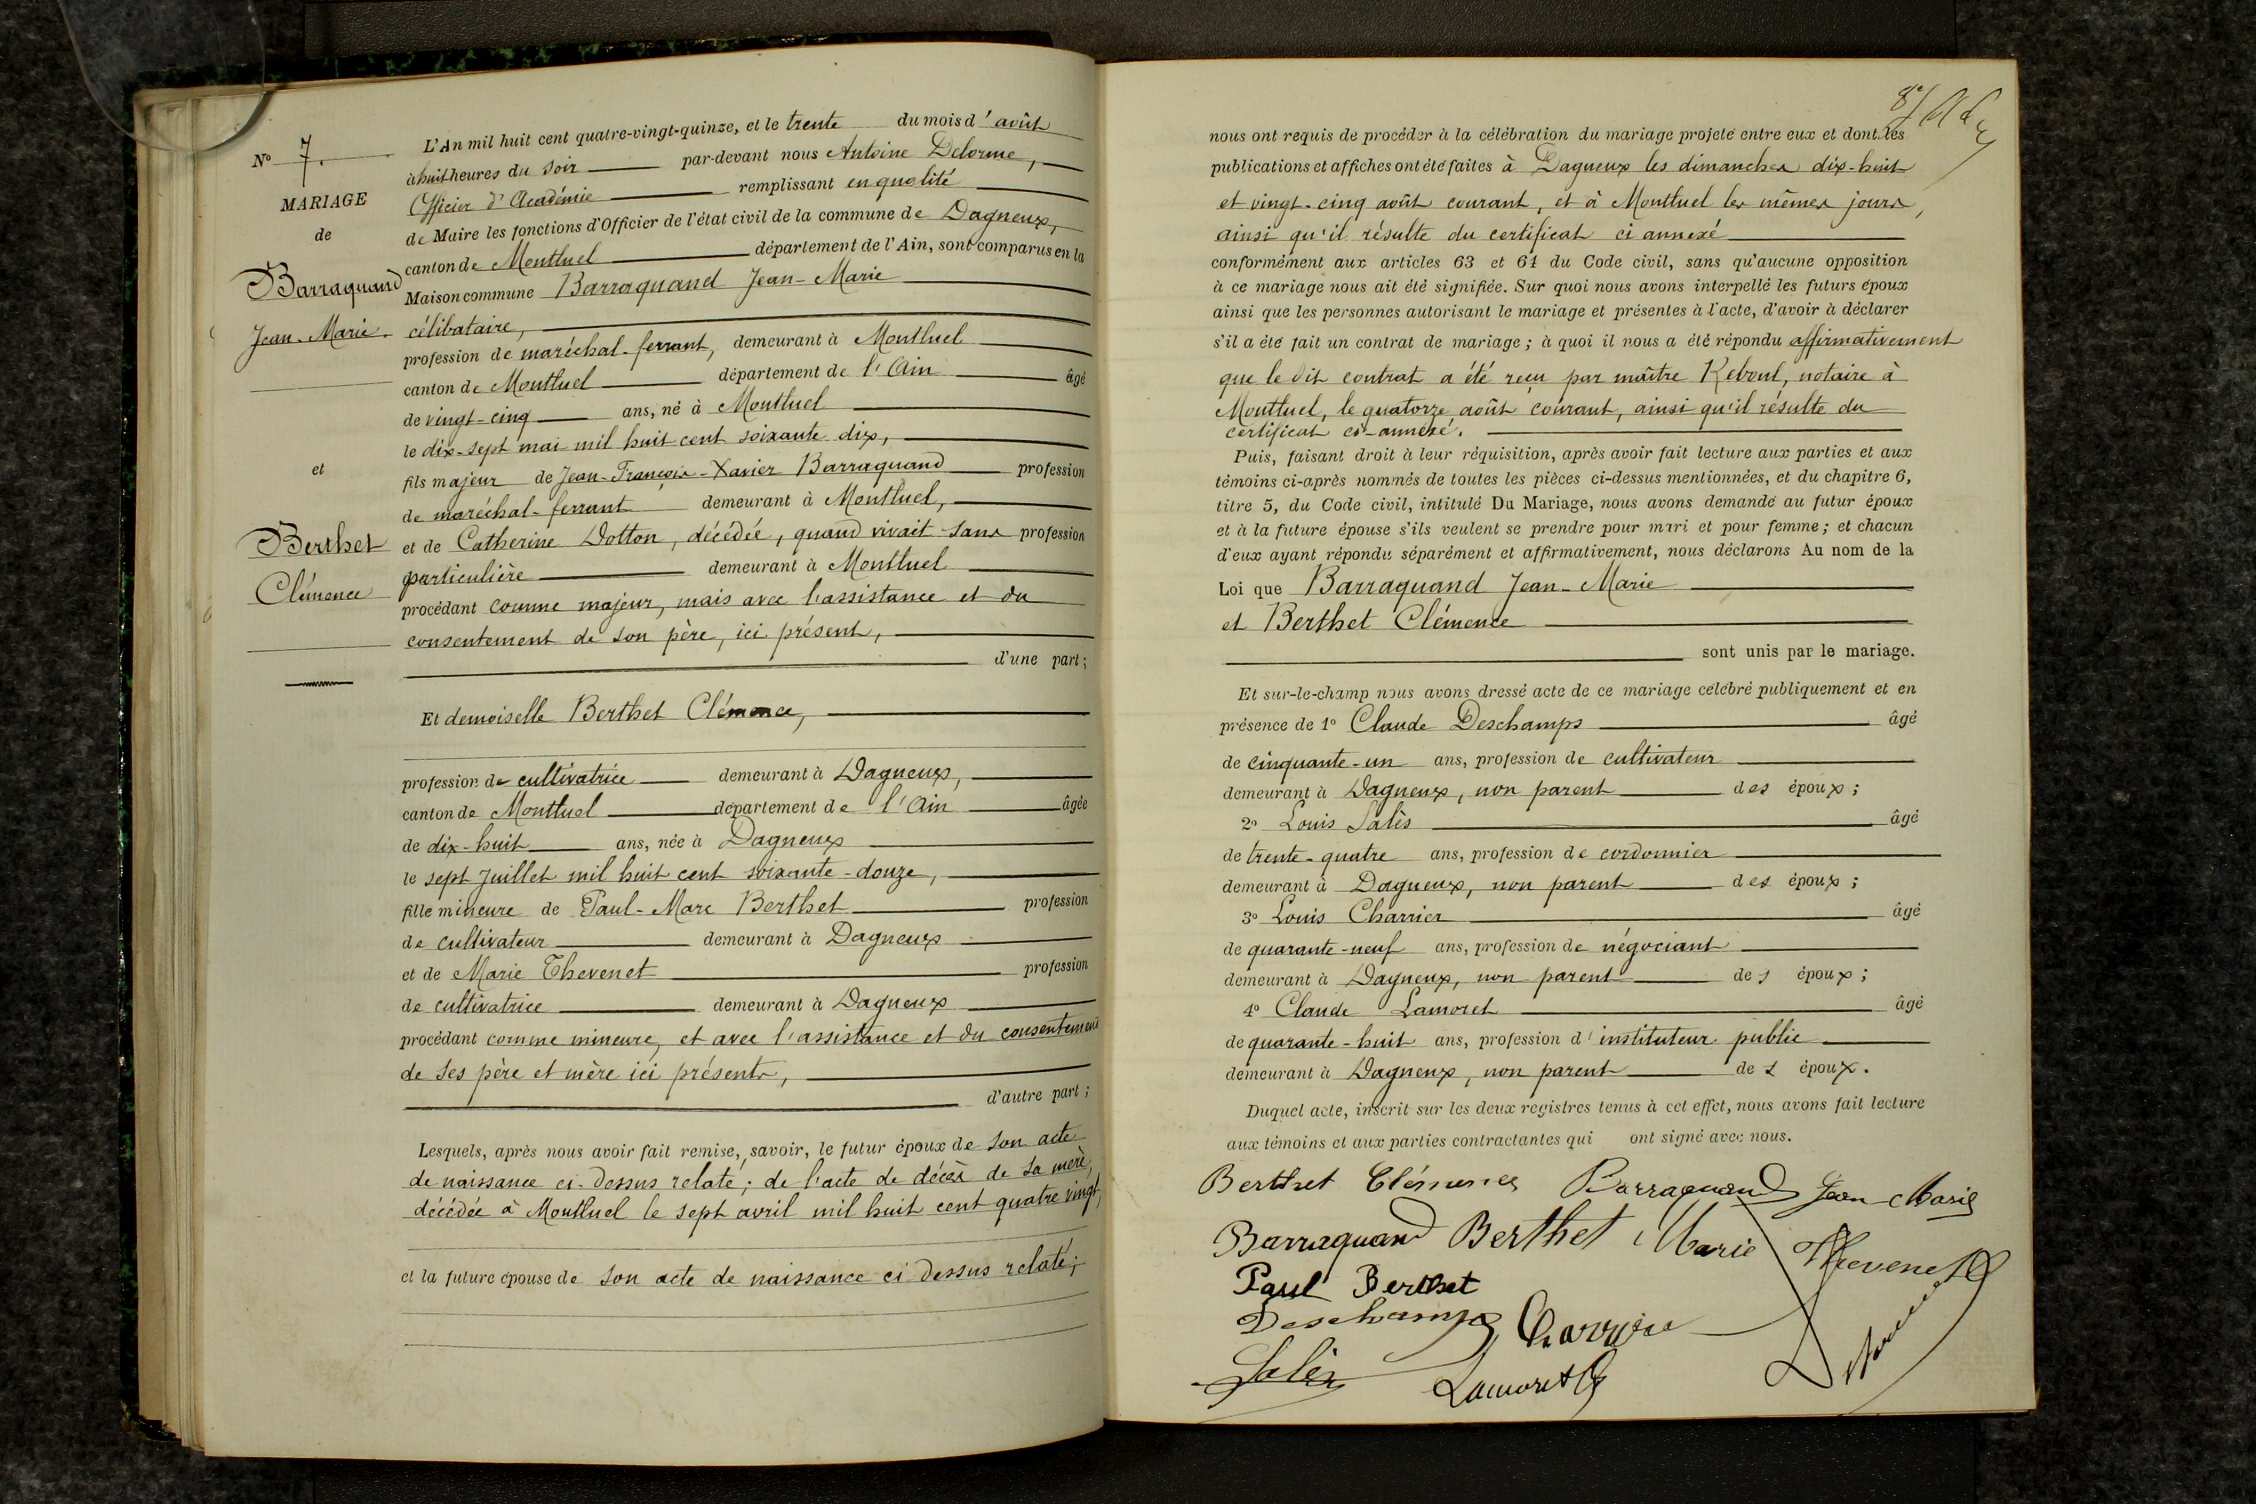 N° 7.
MARIAGE
de
Barraquand
Jean-Marie
et
Berthet
Clémence
L'An mil huit cent quatre-vingt-quinze, et le trente du mois d'août
à huit heures du soir par-devant nous Antoine Delorme,
Officier d'Académie remplissant en qualité
de Maire les fonctions d'Officier de l'état civil de la commune de Dagneux,
canton de Montluel département de l'Ain, sont comparus en la
Maison commune Barraquand Jean-Marie
célibataire,
profession de maréchal-ferrant, demeurant à Montluel
canton de Montluel département de l'Ain âgé
de vingt-cinq ans, né à Montluel
le dix-sept mai mil huit cent soixante dix,
fils majeur de Jean-François-Xavier Barraquand profession
de maréchal-ferrant demeurant à Montluel,
et de Catherine Dotton, décédée, quand vivait sans profession
particulière demeurant à Montluel
procédant comme majeur, mais avec l'assistance et du
consentement de son père, ici présent,
d'une part;
Et demoiselle Berthet Clémence,
profession de cultivatrice demeurant à Dagneux,
canton de Montluel département de l'Ain âgée
de dix-huit ans, née à Dagneux
le sept Juillet mil huit cent soixante-douze,
fille mineure de Paul-Marc Berthet profession
de cultivateur demeurant à Dagneux
et de Marie Thevenet profession
de cultivatrice demeurant à Dagneux
procédant comme mineure, et avec l'assistance et du consentement
de ses père et mère ici présents,
d'autre part;
Lesquels, après nous avoir fait remise, savoir, le futur époux de son acte
de naissance ci-dessus relaté; de l'acte de décès de sa mère,
décédée à Montluel le sept avril mil huit cent quatre vingt,
et la future épouse de son acte de naissance ci-dessus relaté;
nous ont requis de procéder à la célébration du mariage projeté entre eux et dont les
publications et affiches ont été faites à Dagneux les dimanches dix-huit
et vingt-cinq août courant, et à Montluel les mêmes jours,
ainsi qu'il résulte du certificat ci annexé
conformément aux articles 63 et 64 du Code civil, sans qu'aucune opposition
à ce mariage nous ait été signifiée. Sur quoi nous avons interpellé les futurs époux
ainsi que les personnes autorisant le mariage et présentes à l'acte, d'avoir à déclarer
s'il a été fait un contrat de mariage; à quoi il nous a été répondu affirmativement
que le dit contrat a été reçu par maître Reboul, notaire à
Montluel, le quatorze août courant, ainsi qu'il résulte du
certificat ci-annexé.
Puis, faisant droit à leur réquisition, après avoir fait lecture aux parties et aux
témoins ci-après nommés de toutes les pièces ci-dessus mentionnées, et du chapitre 6,
titre 5, du Code civil, intitulé Du Mariage, nous avons demandé au futur époux
et à la future épouse s'ils veulent se prendre pour mari et pour femme; et chacun
d'eux ayant répondu séparément et affirmativement, nous déclarons Au nom de la
Loi que Barraquand Jean-Marie
et Berthet Clémence
sont unis par le mariage.
Et sur-le-champ nous avons dressé acte de ce mariage célébré publiquement et en
présence de 1° Claude Deschamps âgé
de cinquante-un ans, profession de cultivateur
demeurant à Dagneux, non parent des époux;
2° Louis Salès âgé
de trente-quatre ans, profession de cordonnier
demeurant à Dagneux, non parent des époux;
3° Louis Charrier âgé
de quarante-neuf ans, profession de négociant
demeurant à Dagneux, non parent des époux;
4° Claude Lamoret âgé
de quarante-huit ans, profession d'instituteur public
demeurant à Dagneux, non parent des époux.
Duquel acte, inscrit sur les deux registres tenus à cet effet, nous avons fait lecture
aux témoins et aux parties contractantes qui ont signé avec nous.
Berthet Clémence Barraquand Jean Marie
Barraquand Berthet Marie Thevenet
Paul Berthet
Deschamps Charrier
Salès Lamoret Delorme